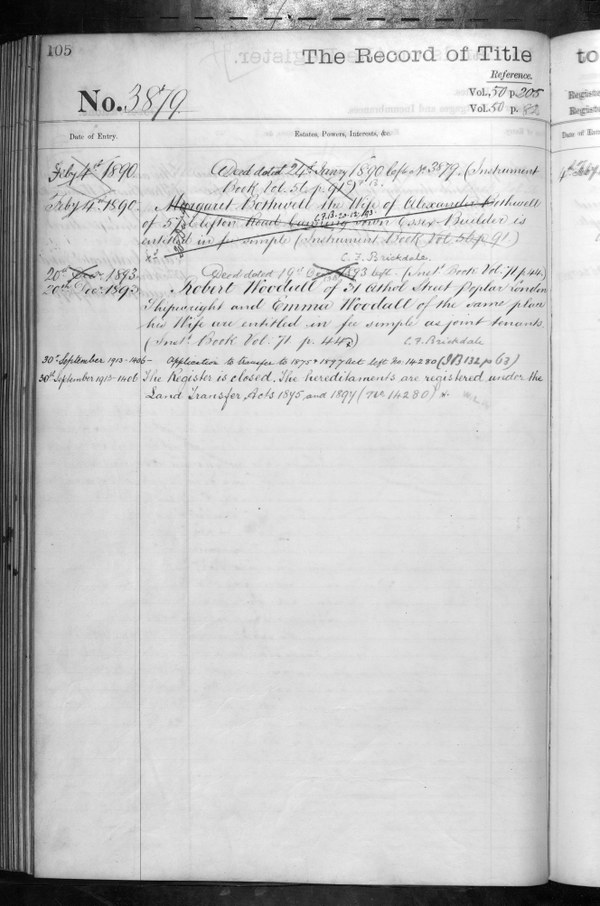 105
The Record of Title
to
Reference.
No. 3879.
Vol. 50 p. 205
Vol. 50 p.
Date of Entry.
Estates, Powers, Interests, &c.
Feby 4th 1890.
Deed dated 24th Jany 1890 left No. 3879. (Instrument
Book Vol. 56 p. 91)
Feby 4th 1890.
Margaret Bothwell the Wife of Alexander Bothwell
of 57 Clifton Road Canning Town Essex Builder is
entitled in fee simple (Instrument Book Vol. 56 p 91)
C. F. Brickdale.
20th Dec. 1893
Deed dated 19th Dec. 1893 left. (Inst. Book Vol. 71 p. 44
20th Dec. 1893
Robert Woodall of 31 Athol Street Poplar London
Shipwright and Emma Woodall of the same place
his Wife are entitled in fee simple as joint tenants.
(Inst. Book Vol. 71 p. 443)
C. F. Brickdale
30th September 1913-1406 -
Application to transfer to 1875 & 1897 Act left No. 14280 (IB 132, p. 63)
30th September 1913-1406
The Register is closed. The hereditaments are registered under the
Land Transfer Acts 1875 and 1897 (No. 14280)